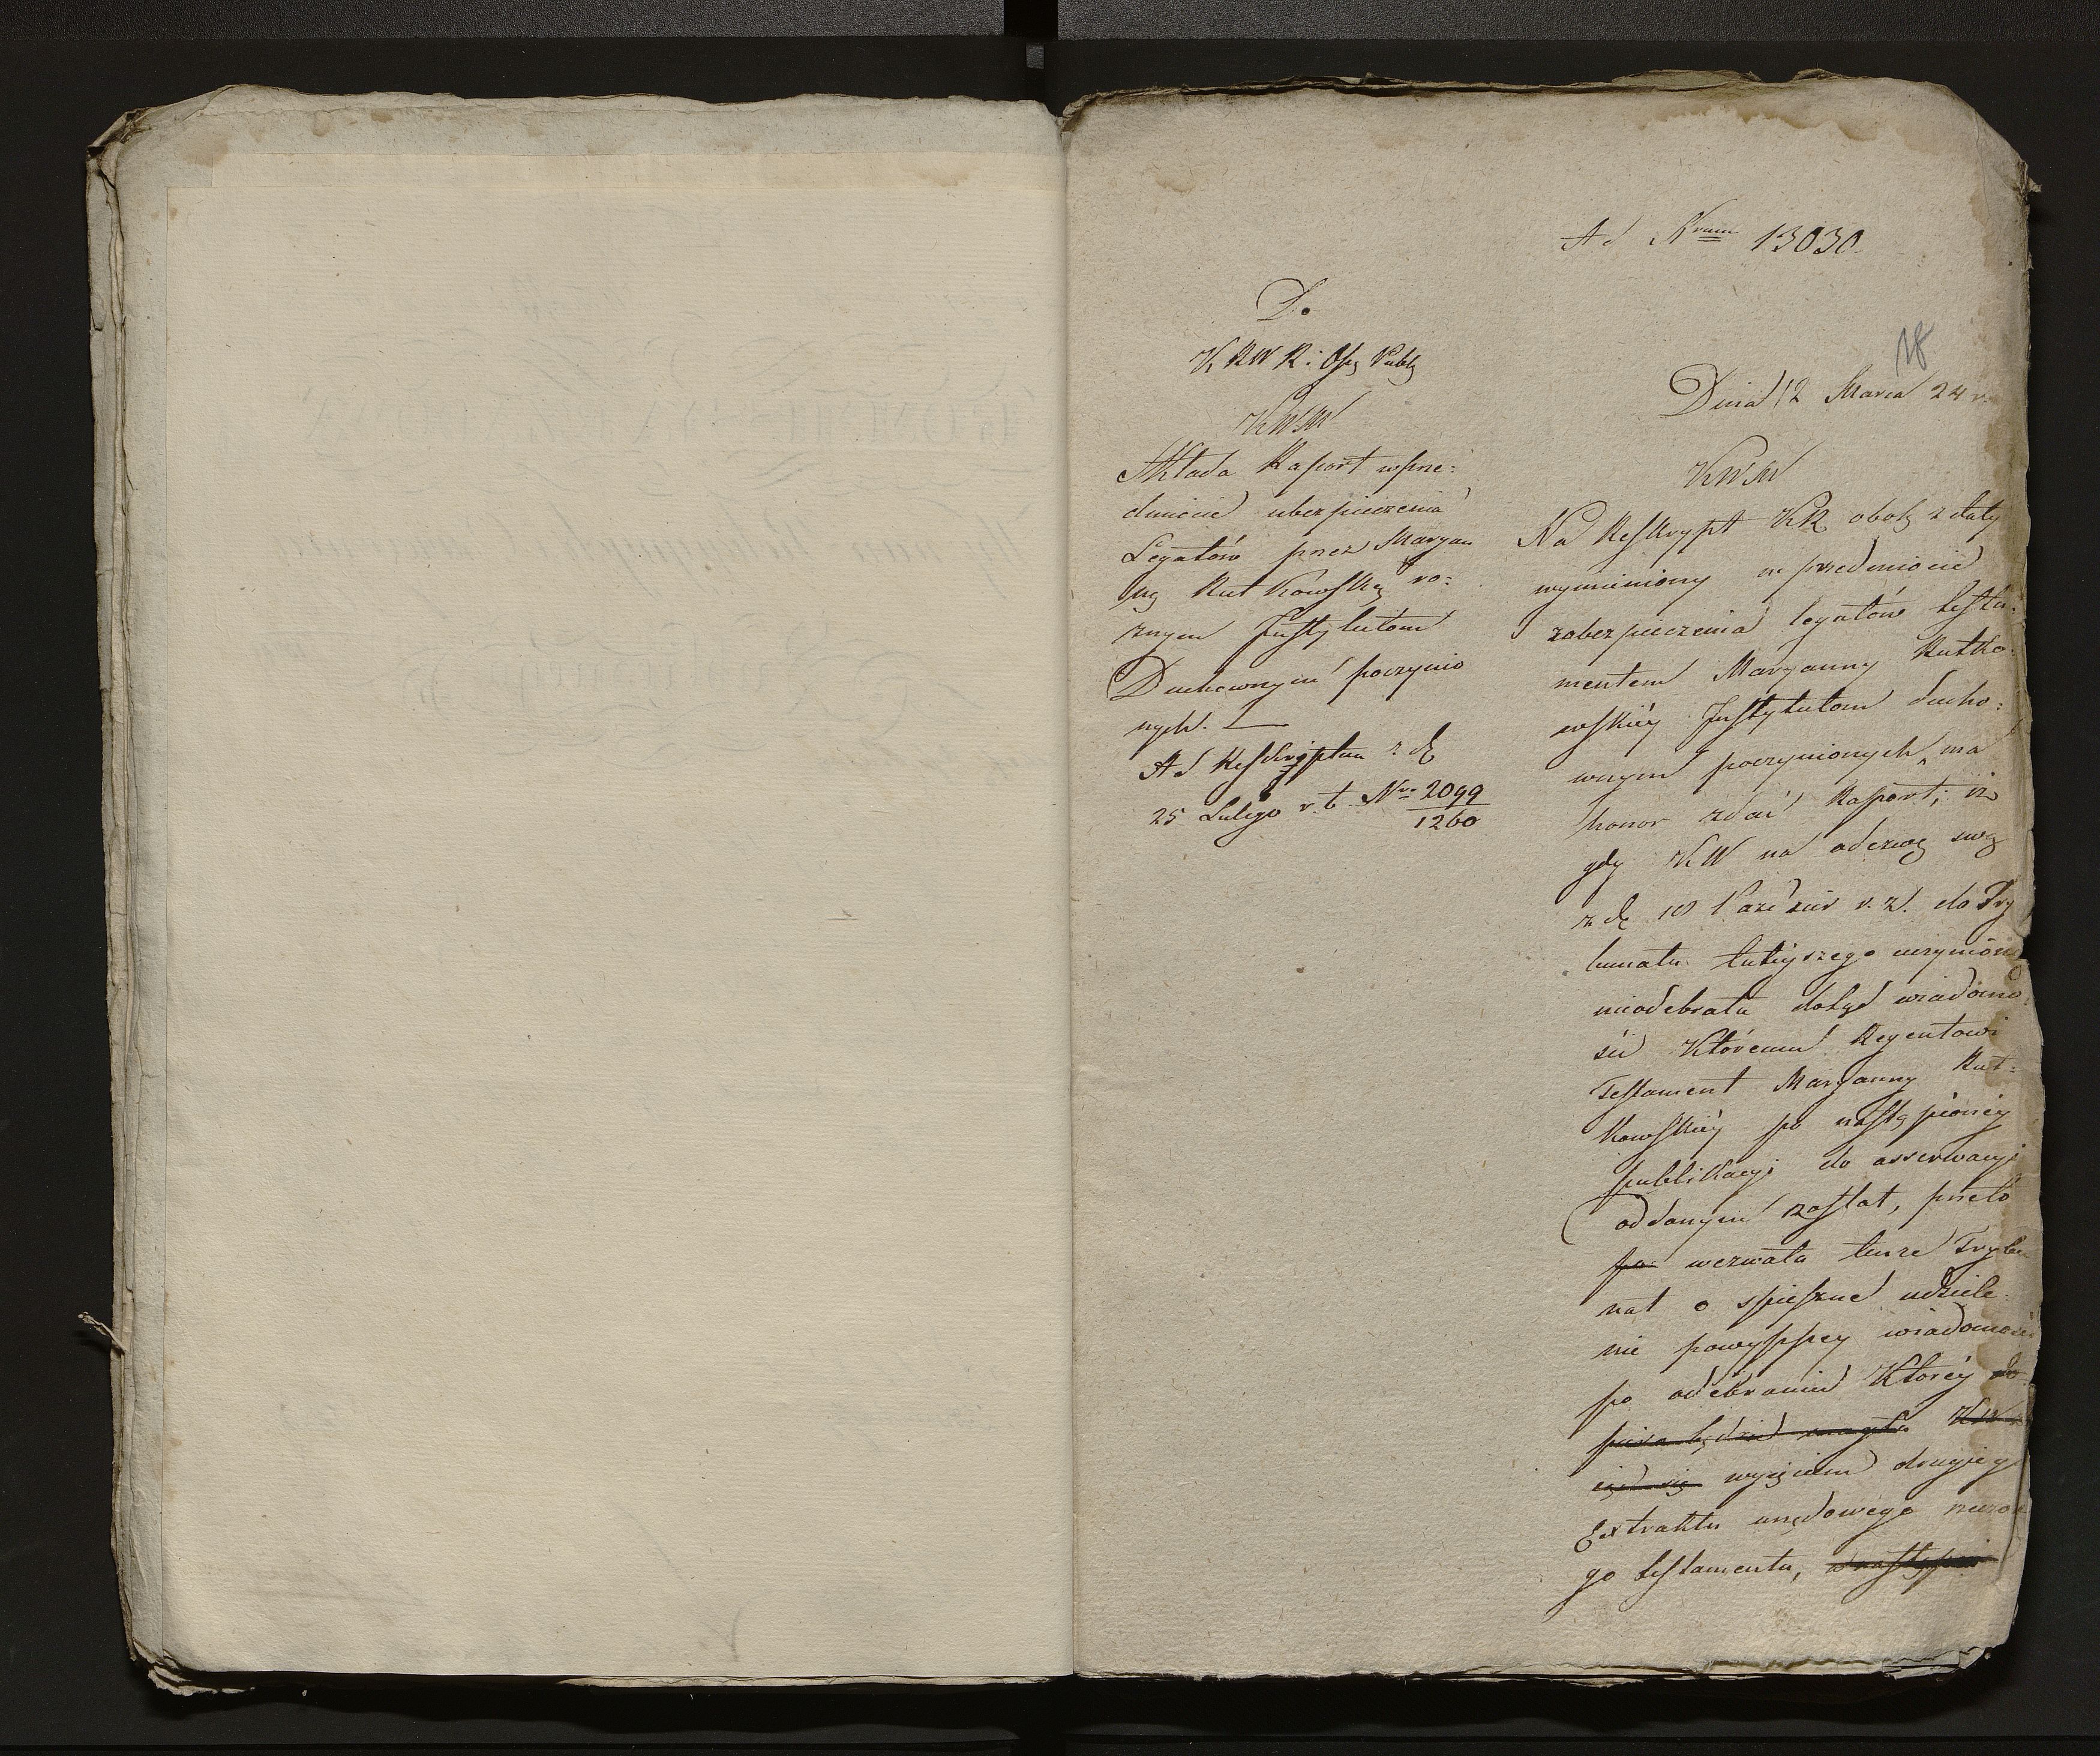 Ad Nrum 13030
18
Do
KRWR i Ośw Publ
KWM
Składa Raport wprze=
dmiocie ubezpieczenia
Legatów przez Maryan
nę Rutkowską ro=
znym Instytutom
Duchownym poczynio
nych. —
Ad Reskriptum z d
25 Lutego r. b. Nro 2099
1260
Dnia 12 Marca 24 r.
KWM
Na Reskrypt KR obok z daty
wymieniony w przedmiocie
zabezpieczenia legatów testa=
mentem Maryanny Rutko=
wskiéy Instytutom ducho=
wnym poczynionych, ma
honor zdać Raport; iż
gdy KW na odezwę swą
z d. 10 Paździer r. z. do Try
bunału tutejszego uczynioną
nieodebrała dotąd wiadomo=
ści któremu Regentowi
Testament Maryanny Rut=
kowskiéy po nastąpionéy
publikacyi do asserwacyi
oddanym został, przeto
po wezwała tenże Trybu
nał o spieszne udziele=
nie powyższey wiadomości
po odebraniu któréy do
piero będzie mogła KW
wyjęciem drugiego
Extraktu urzędowego
go testamentu, a nastąpi